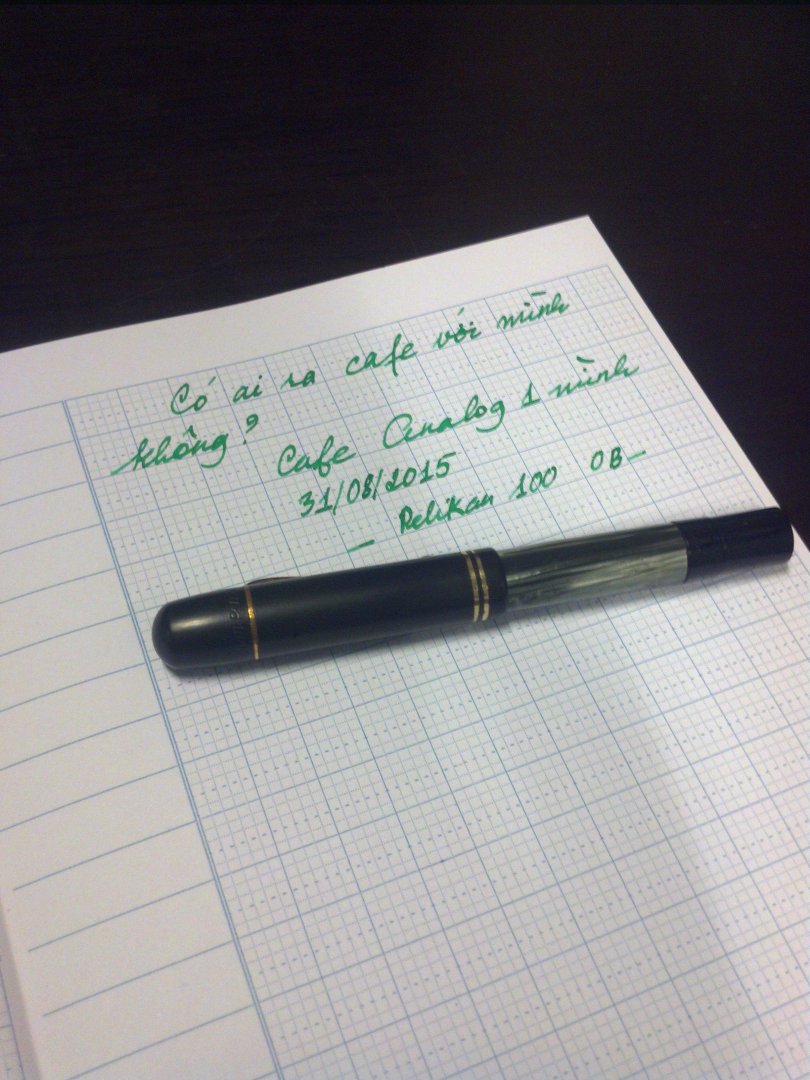 Có ai ra cafe với mình
không?
Cafe Analog 1 mình
31/08/2015
— Pelikan 100 OB —